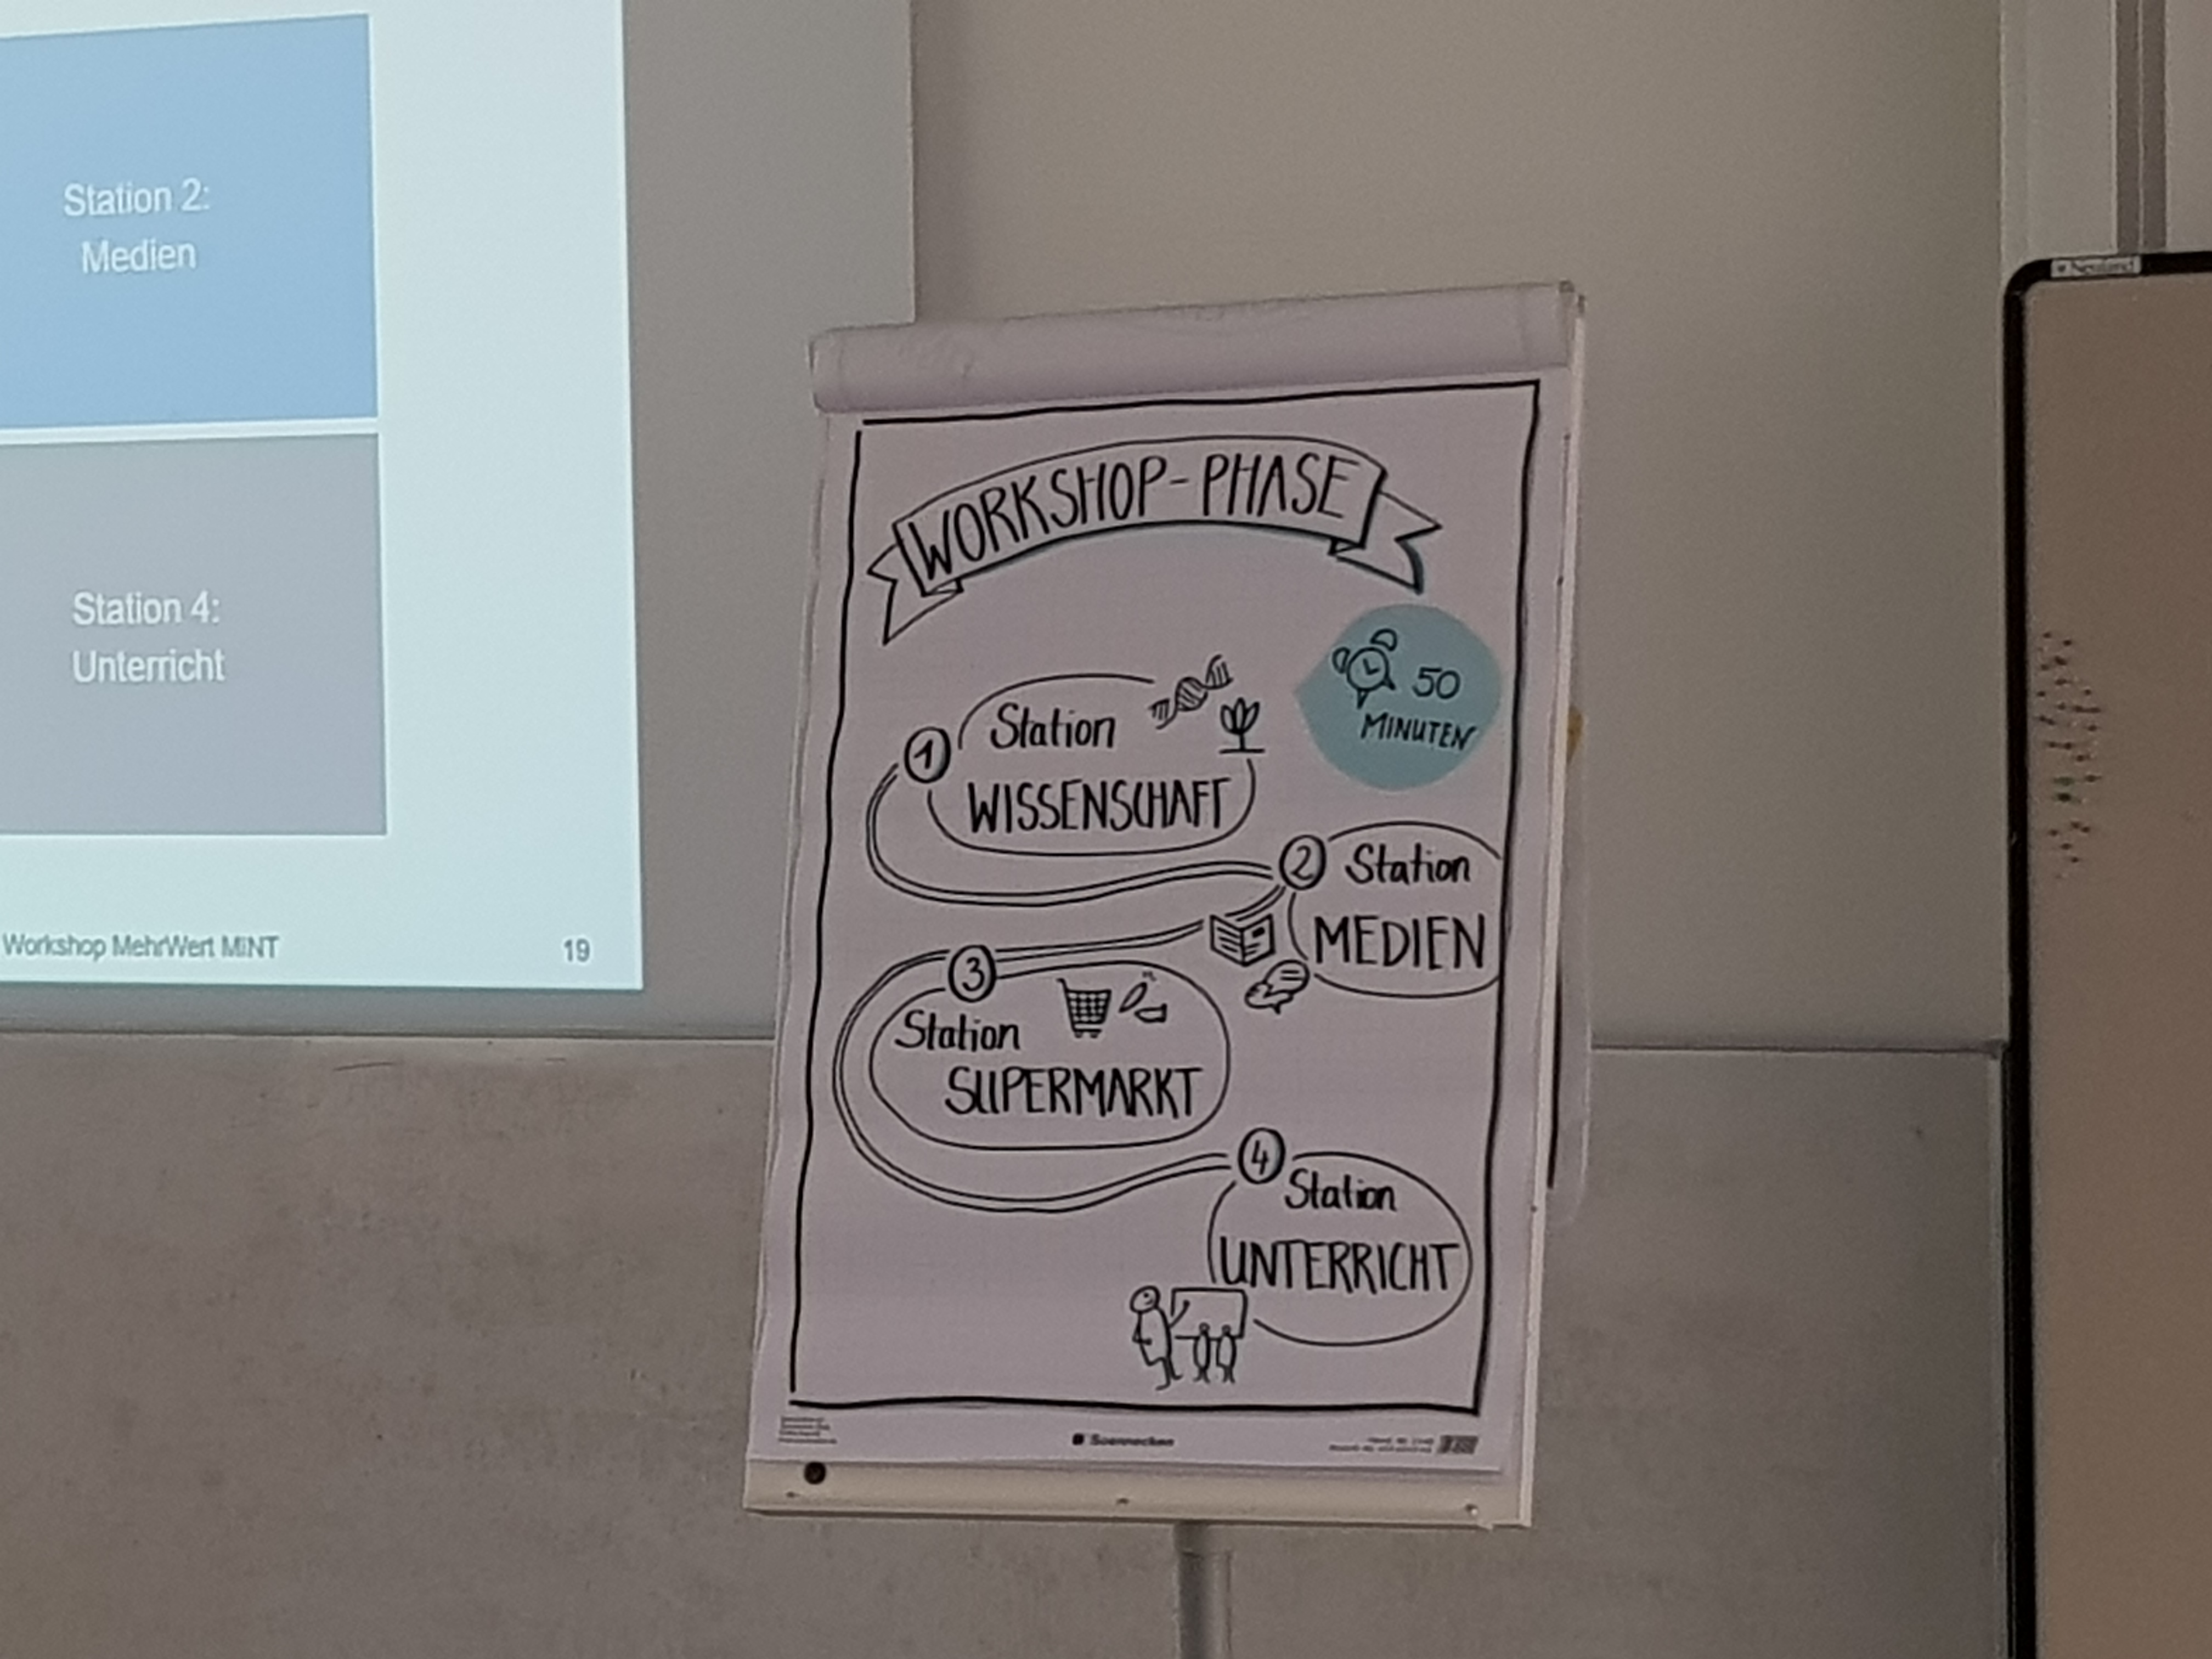 Station 2:
Medien
Station 4:
Unterricht
Workshop MehrWert MINT
19
WORKSHOP-PHASE
50
MINUTEN
1
Station
WISSENSCHAFT
2
Station
MEDIEN
3
Station
SUPERMARKT
4
Station
UNTERRICHT
Soennecken
Neuland